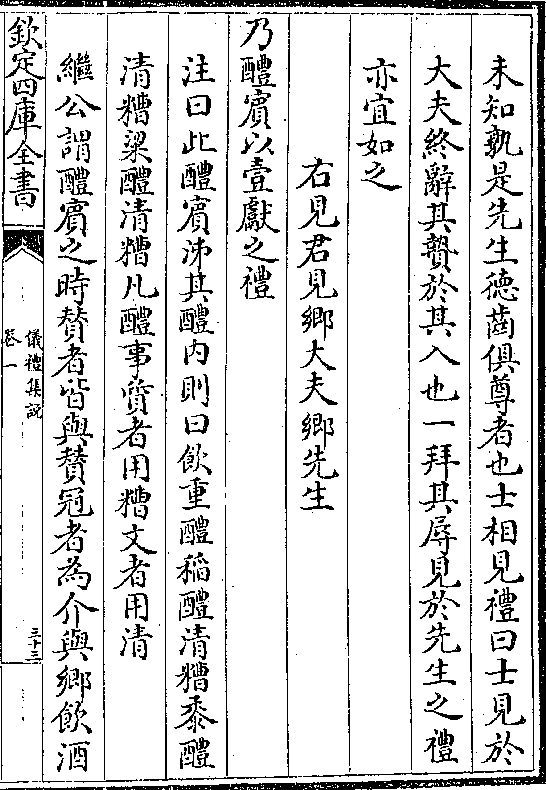 未知孰是先生德齒俱尊者也士相見禮曰士見於
大夫終辭其贄於其入也一拜其辱見於先生之禮
亦宜如之
右見君見鄉大夫鄉先生
乃醴賓以壹獻之禮
注曰此醴賓泲其醴内則曰飲重醴稻醴清糟黍醴
清糟粱醴清糟凡醴事質者用糟文者用清
繼公謂醴賓之時賛者皆與賛冠者為介與鄉飲酒
欽定四庫全書
儀禮集說
卷一
三十三